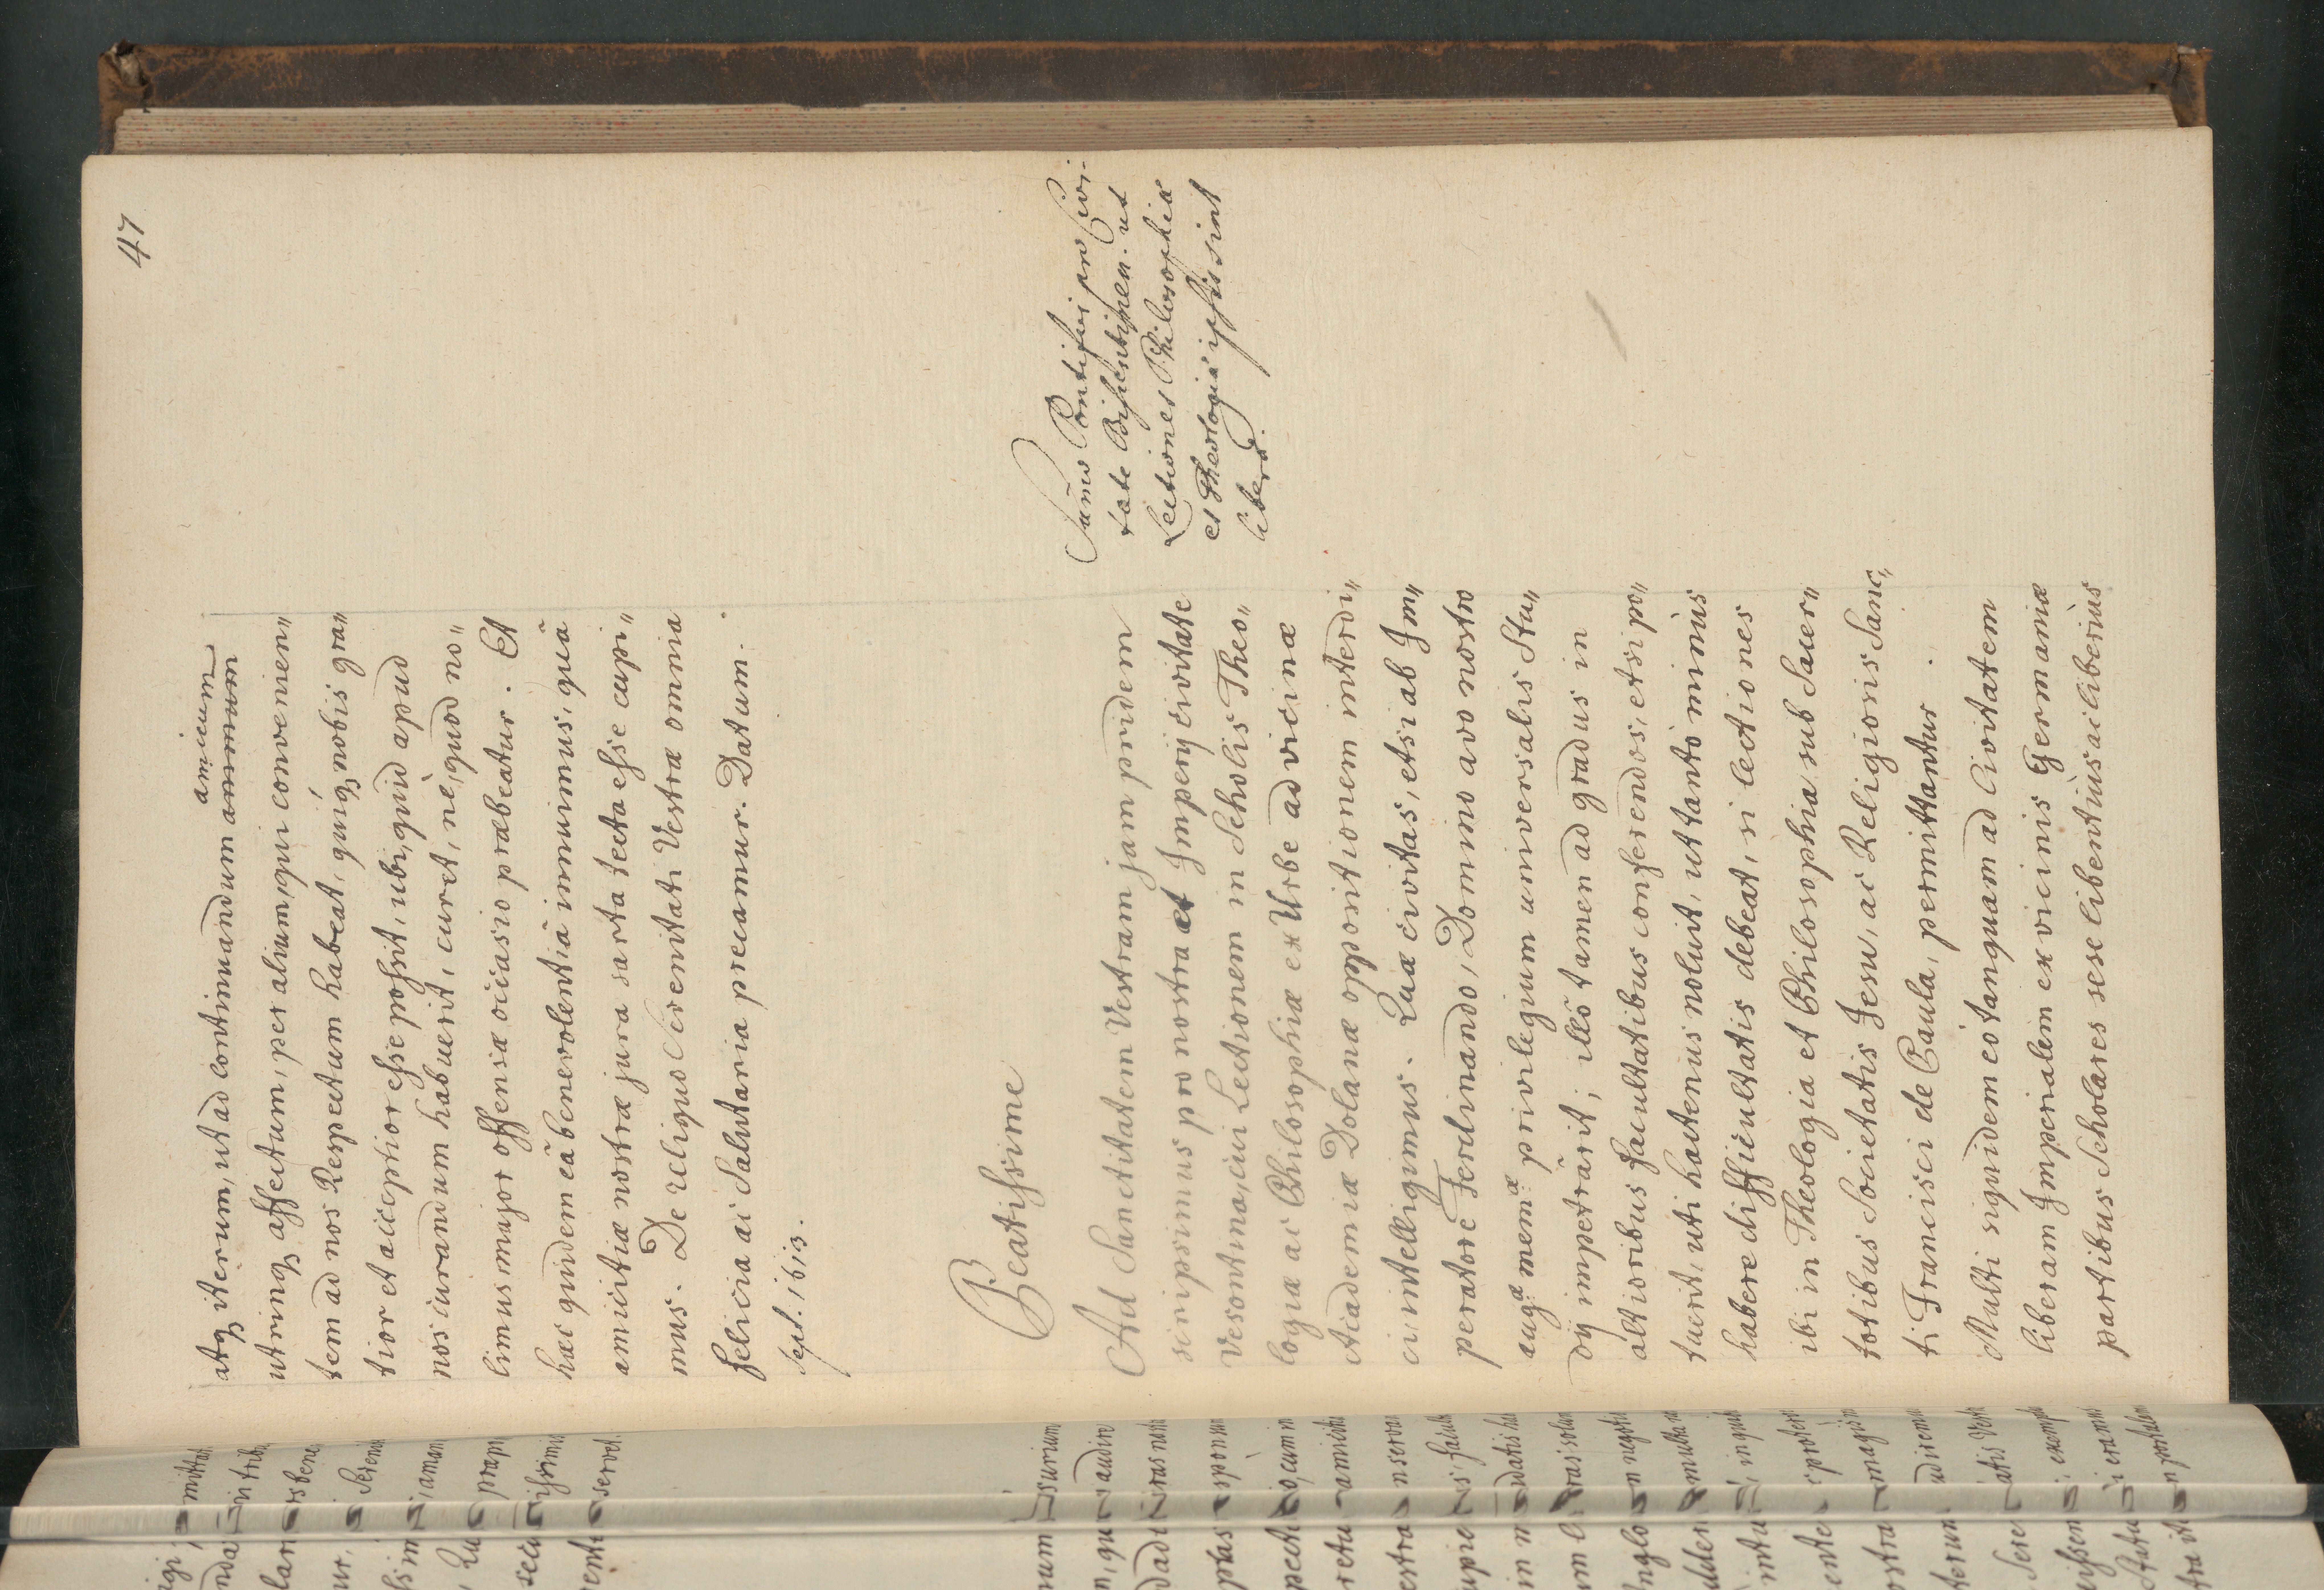 47
amicum
atq iterum, ut ad continuandum animum
utrinq affectum, per alium, qui convenien„
tem ad nos Respectum habeat, quiq nobis gra„
tior et acceptior esse possit, ubi, quid apud
nos curandum habuerit, curet, nè, quod no„
limus major offensæ occasio præbeatur. Et
hæc quidem eâ benevolentiâ innuimus, quâ
amicitiæ nostræ jura sarta tecta esse cupi„
mus. De reliquo Serenitati Vestræ omnia
felicia ac Salutaria precamur. Datum.
Sept. 1613.
Beatissime
Sum̃o Pontifici pro Civi-
tate Bisuntinen. ut
Lectiones Philosophiæ
et Theologiæ ipsis sint
liberæ.
Ad Sanctitatem Vestram jam pridem
scripsimus pro nostra et Imperÿ civitate
Vesontina, cui Lectionem in Scholis Theo„
logiæ ac Philosophiæ ex Urbe ad vicinæ
Academiæ Dolanæ oppositionem interdi„
ci intelligimus. Quæ civitas, etsi ab Im„
peratore Ferdinando, Domino avo nostro
augæ memæ privilegium universalis Stu„
dÿ impetrârit; illô tamen ad gradus in
altioribus facultatibus conferendos, etsi po„
tuerit, uti hactenus noluit, ut tantò minùs
habere difficultatis debeat, si lectiones
ibi in Theologia et Philosophia sub Sacer„
totibus Societatis Jesu, ac Religiosis Sanc„
ti Francisci de Paula, permittantur.
Multi siquidem eò tanquam ad Civitatem
liberam Imperialem ex vicinis Germaniæ
partibus Scholares sese libentiùs ac liberiùs